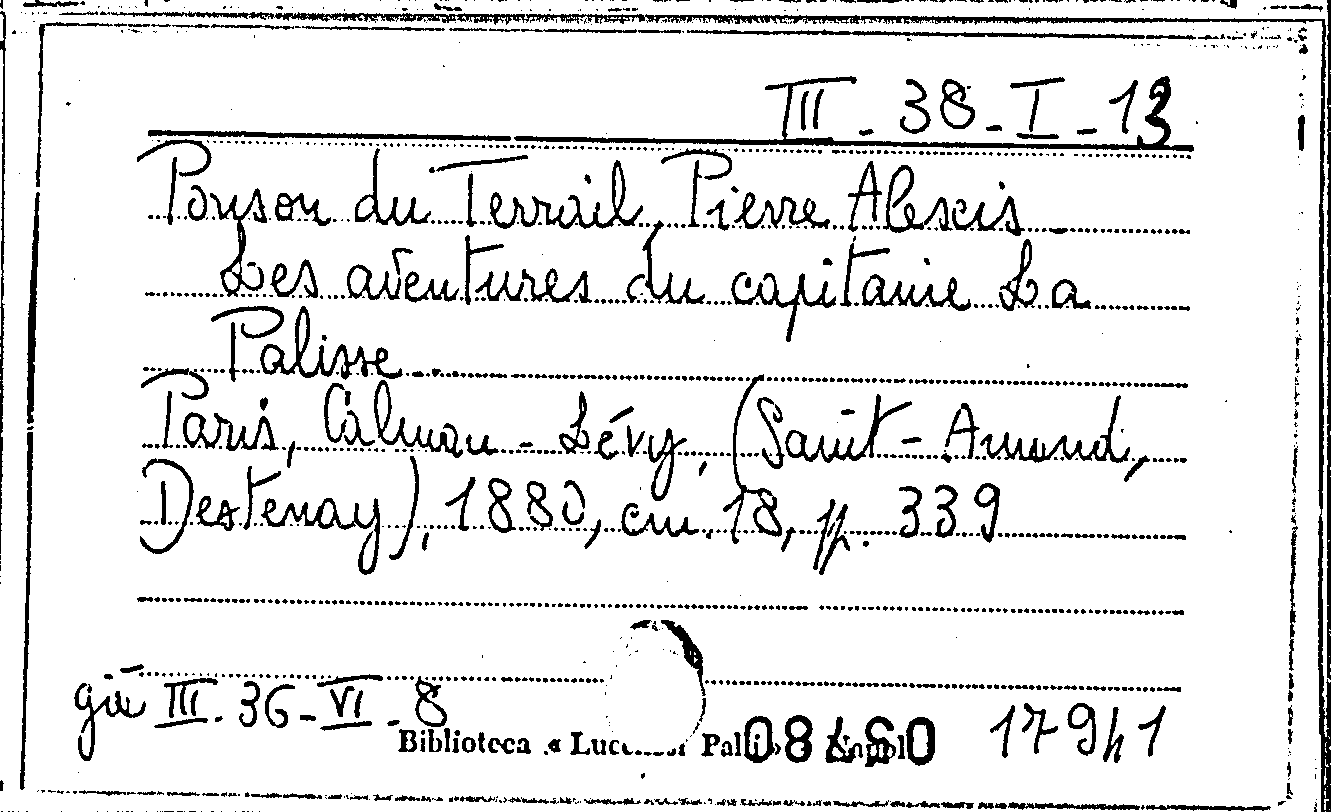 III - 38 - I - 13
Ponson du Terrail, Pierre Alexis -
Les aventures du capitaine La
Palisse...
Paris, Calman-Lévy, (Saint-Amand,
Destenay), 1880, cm. 18, pp. 339
già III. 36 - VI - 8
Biblioteca « 17941